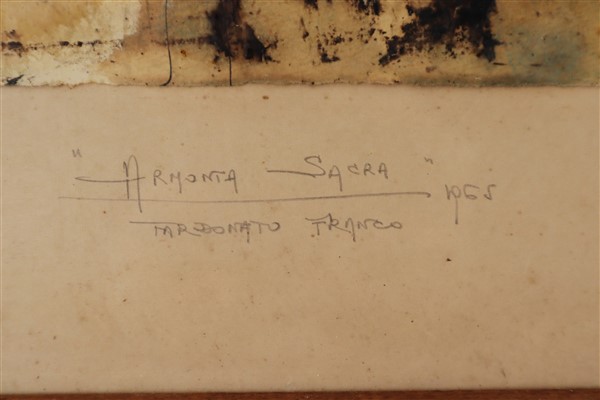 "ARMONIA SACRA" 1965
TARDONATO FRANCO